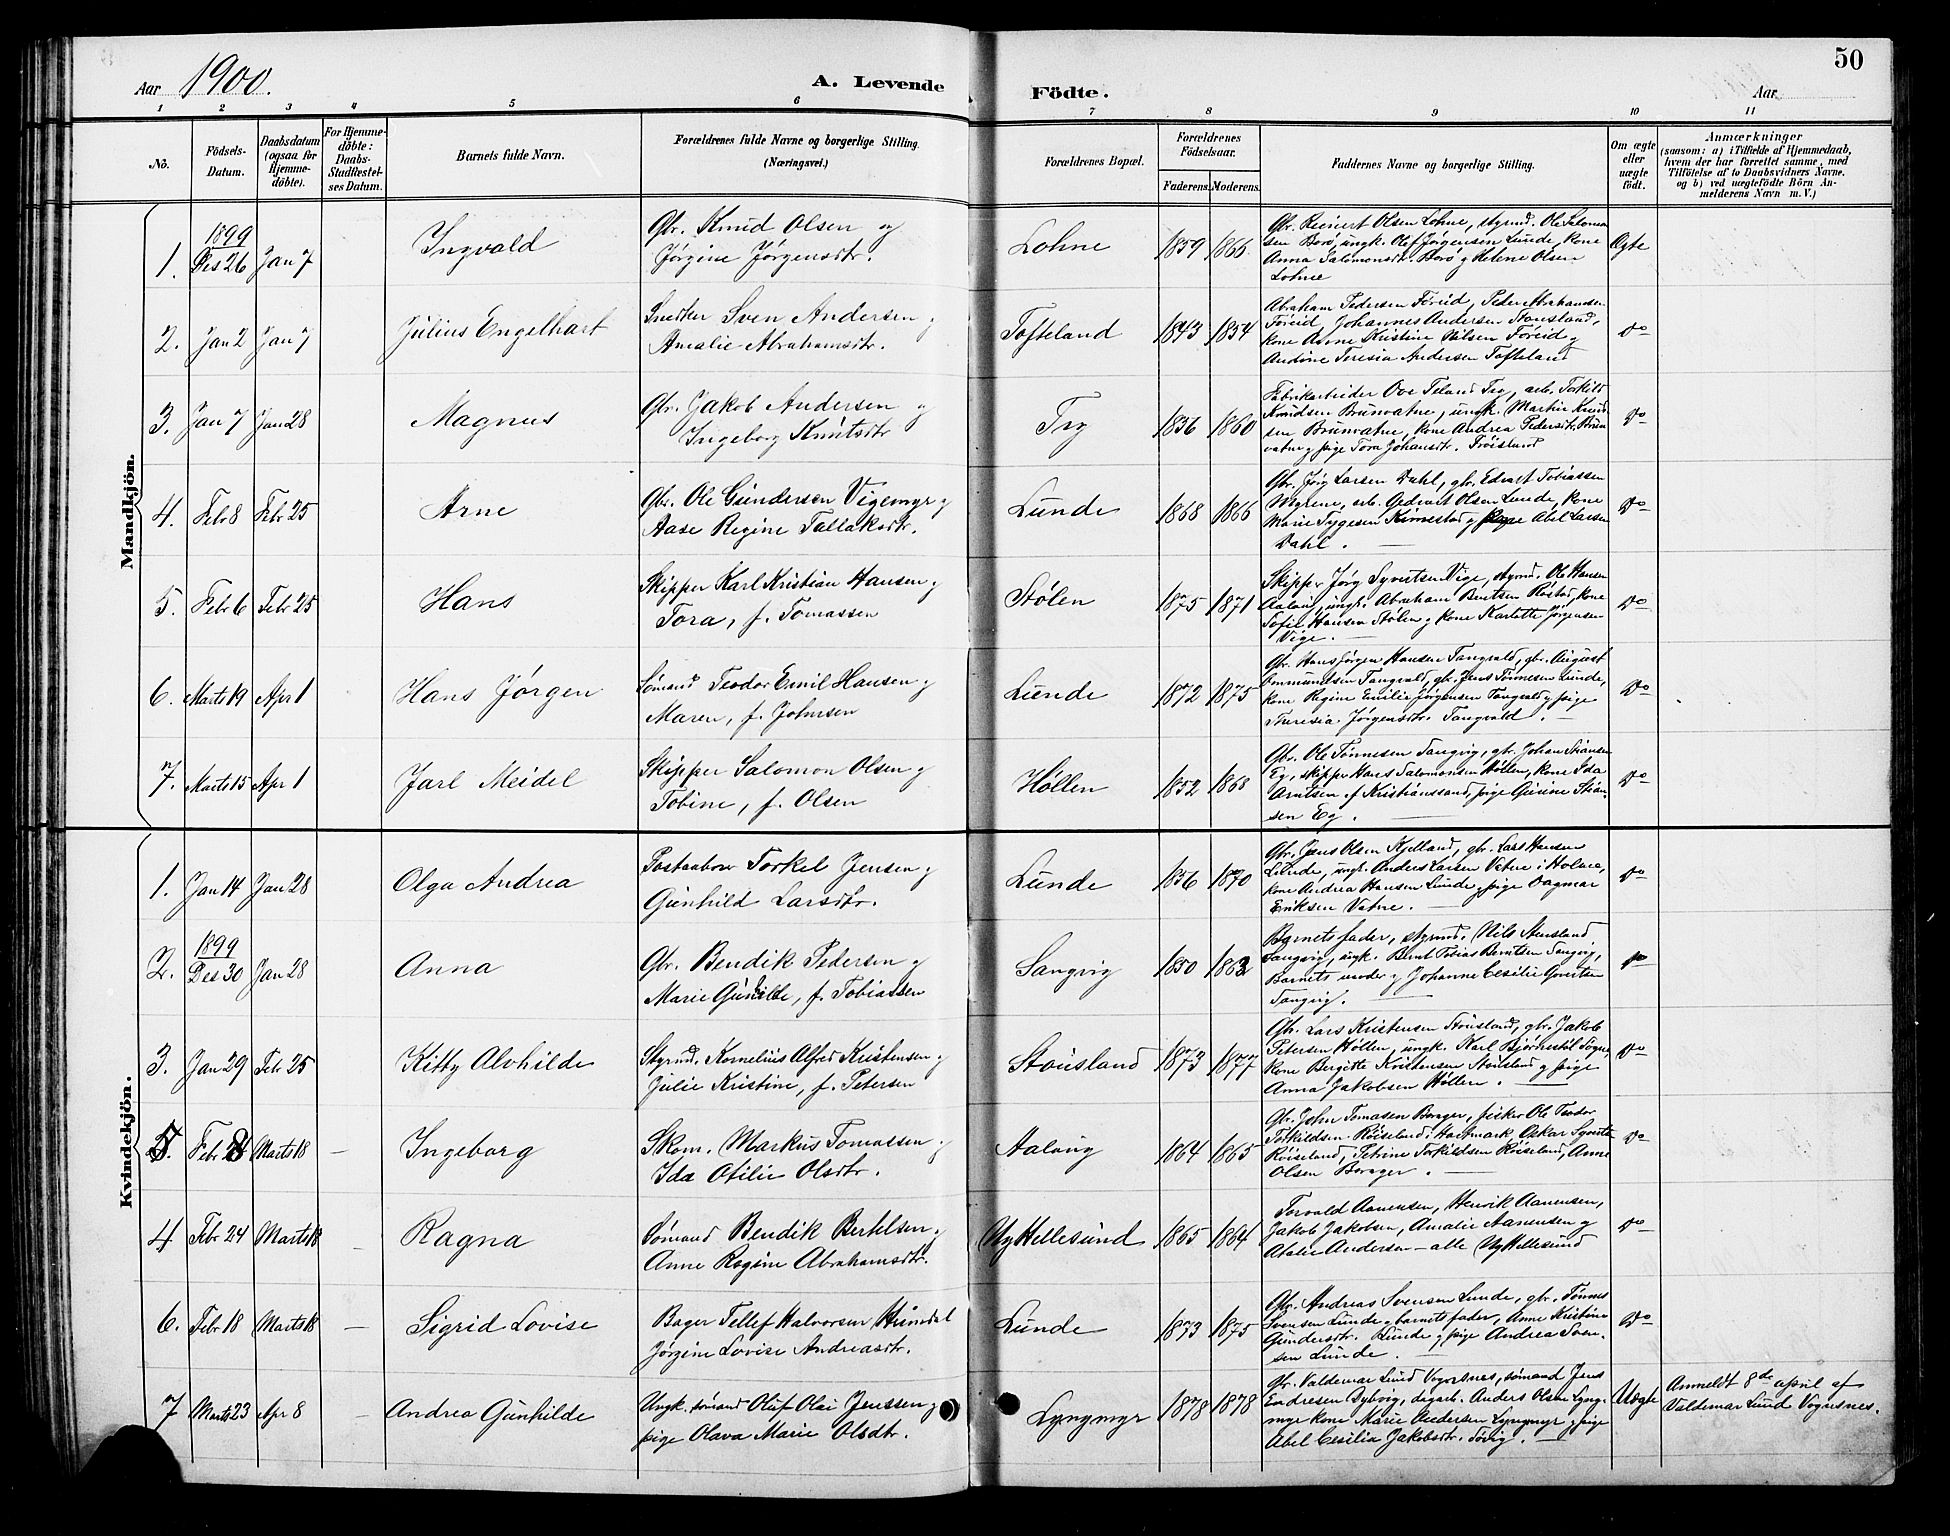 50
Aar 1900.
A. Levende Födte.
Aar
1 2 3 4 5 6 7 8 9 10 11
No.
Födsels-Datum.
Daabsdatum (ogsaa for Hjemmedöbte).
For Hjemmedöbte: Daabs-Stadfestelses Datum.
Barnets fulde Navn.
Forældrenes fulde Navne og borgerlige Stilling.
(Næringsvei.)
Forældrenes Bopæl.
Forældrenes Födselsaar.
Faderens. Moderens.
Faddernes Navne og borgerlige Stilling.
Om ægte eller uægte födt.
Anmærkninger
(saasom: a) i Tilfælde af Hjemmedaab, hvem der har forrettet samme, med Tilföielse af to Daabsvidners Navne, og b) ved uægtefödte Börn Anmelderens Navn m. V.)
Mandkjön.
1. 1899 Des 26 Jan 7 Ingvald
Gbr. Knud Olsen og
Jörgine Jörgensdtr.
Lohne 1859 1866
Gbr. Reinert Olsen Lohne, styrmd. Ole Salomon
sen Borö, ungk. Olef Jörgensen Lunde, kone
Anna Salomonsdt. Borö g Helene Olsen
Lohne
Ægte
2. Jan 2 Jan 7 Julius Engelhart
Snedker Sven Andersen g
Amalie Abrahamsdtr.
Tofteland 1843 1854
Abraham Pedersen Föreid, Peder Abrahamsen
Föreid, Johannes Andersen Stausland,
kone Anne Kristine Nilsen Föreid g
Andine Teresia Andersen Tofteland
Do
3. Jan 7 Jan 28 Magnus
Gbr. Jakob Andersen og
Ingeborg Knutsdtr
Try 1856 1860
Fabrikarbeider Ove Teland Try, arb. Torkild
Knudsen Brunvatne, ungk. Martin Knud
sen Brunvatne, kone Andrea Pedersdtr. Brun
vatne g pige Tora Johansdtr. Fröisland
Do
4. Febr 8 Febr 25 Arne
Gbr. Ole Gundersen Vigemyr g
Aase Regine Tallaksdtr.
Lunde 1868 1866
Gbr. Jörg Larsen Dahl, gbr. Edvart Tobiassen
Myrene, arb. Gedvart Olsen Lunde, kone
Marie Tygesen Kimestad g pige Abel Larsen
Dahl.
Do
5. Febr 6 Febr 25 Hans
Skipper Karl Kristian Hansen g
Tora, f. Tomassen
Stölen 1875 1871
Skipper Jörg Syvertsen Vige, styrmd. Ole Hansen
Aalöig, ungk. Abraham Bentsen Röstad, kone
Sofie Hansen Stölen g kone Karlotte Jörgensen
Vige.
Do
6. Marts 19 Apr 1 Hans Jörgen
Sömand Teodor Emil Hansen g
Maren, f. Johnsen
Lunde 1872 1875
Gbr. Hans Jörgen Hansen Tangvald, gbr. August
Ommundsen Tangvald, gb. Jens Tönnesen Lunde,
kone Regine Emilie Jörgensen Tangvald g pige
Theresia Jörgensdtr. Tangvald.
Do
7. Marts 15 Apr 1 Jarl Meidel
Skipper Salomon Olsen g
Tobine, f. Olsen
Höllen 1852 1868
Gbr. Ole Tönnesen Langvig, gbr. Johan Stiansen
Eg, skipper Hans Salomonsen Höllen, kone Ida
Arntsen af Kristianssand, pige Gusine Stian-
sen Eg.
Do
Kvindekjön.
1. Jan 14 Jan 28 Olga Andrea
Postaabner Torkel Jensen g
Gunhild Larsdtr.
Lunde 1856 1870
Gbr. Jens Olsen Kjelland, gbr. Lars Hansen
Lunde, ungk. Anders Larsen Vatne i Holme,
kone Andrea Hansen Lunde, pige Dagmar
Eriksen Vatne.
Do
2. 1899 Des 30 Jan 28 Anna
Gbr. Bendik Pedersen g
Marie Gunhilde, f. Tobiassen
Langvig 1850 1862
Barnets fader, styrmd. Nils Stensland
Langvig, ungk. Bent Tobias Berntsen Langvig,
Barnets moder g Johanne Cesilie Govertsen
Langvig.
Do
3. Jan 29 Febr 25 Kitty Alvhilde
Styrmd. Kornelius Alfred Kristensen g
Julie Kristine, f. Petersen
Stausland 1873 1877
Gbr. Lars Kristensen Stausland, gbr. Jakob
Petersen Höllen, ungk. Karl Björnestil Sögne,
kone Bergitte Kristensen Stausland g pige
Anna Jakobsen Höllen.
Do
5. Febr 8 Marts 18 — Ingeborg
Skom. Markus Tomassen g
Ida Otilie Olsdtr.
Aalövig 1864 1865
Gbr. John Tomasen Borager, fisker Ole Teodor
Torkildsen Röiseland i Hartmark, Oskar
Röiseland, Tobine Torkildsen Röiseland, Anne
Olsen Borager.
Do
4 Febr 24 Marts 18 — Ragna
Sömand Bendik Bertelsen g
Anne Regine Abrahamsdtr.
Ny Hellesund 1865 1864
Torvald Aanensen, Henrik Aanensen,
Jakob Jakobsen, Amalie Aanensen g
Andersen — alle Ny Hellesund
Do
6. Febr 18 Marts 18 — Sigrid Lovise
Bager Tellef Halvorsen Hunsdal
Jörgine Lovise Andreasdtr.
Lunde 1873 1875
Gbr. Andreas Svensen Lunde, gbr. Tönnes
Svensen Lunde g barnets fader, Anne Kristine
Gundersdtr. Lunde g pige Andrea Sven-
sen Lunde.
Do
7 Marts 23 Apr 8 — Andrea Gunhilde
Ungk. sömand Oluf Olai Jenssen g
pige Olava Marie Olsdtr.
Lyngmyr 1878 1878
Gbr. Valdemar Lund Vognsnes, sömand Jens
Endresen Byborg, dagarb. Anders Olsen Lyng-
myr kone Marie Pedersen Lyngmyr g pige
Abel Cesilia Jakobsdtr. Tövig.
Uægte
Anmeldt 8de april af
Valdemar Lund Vognsnes.